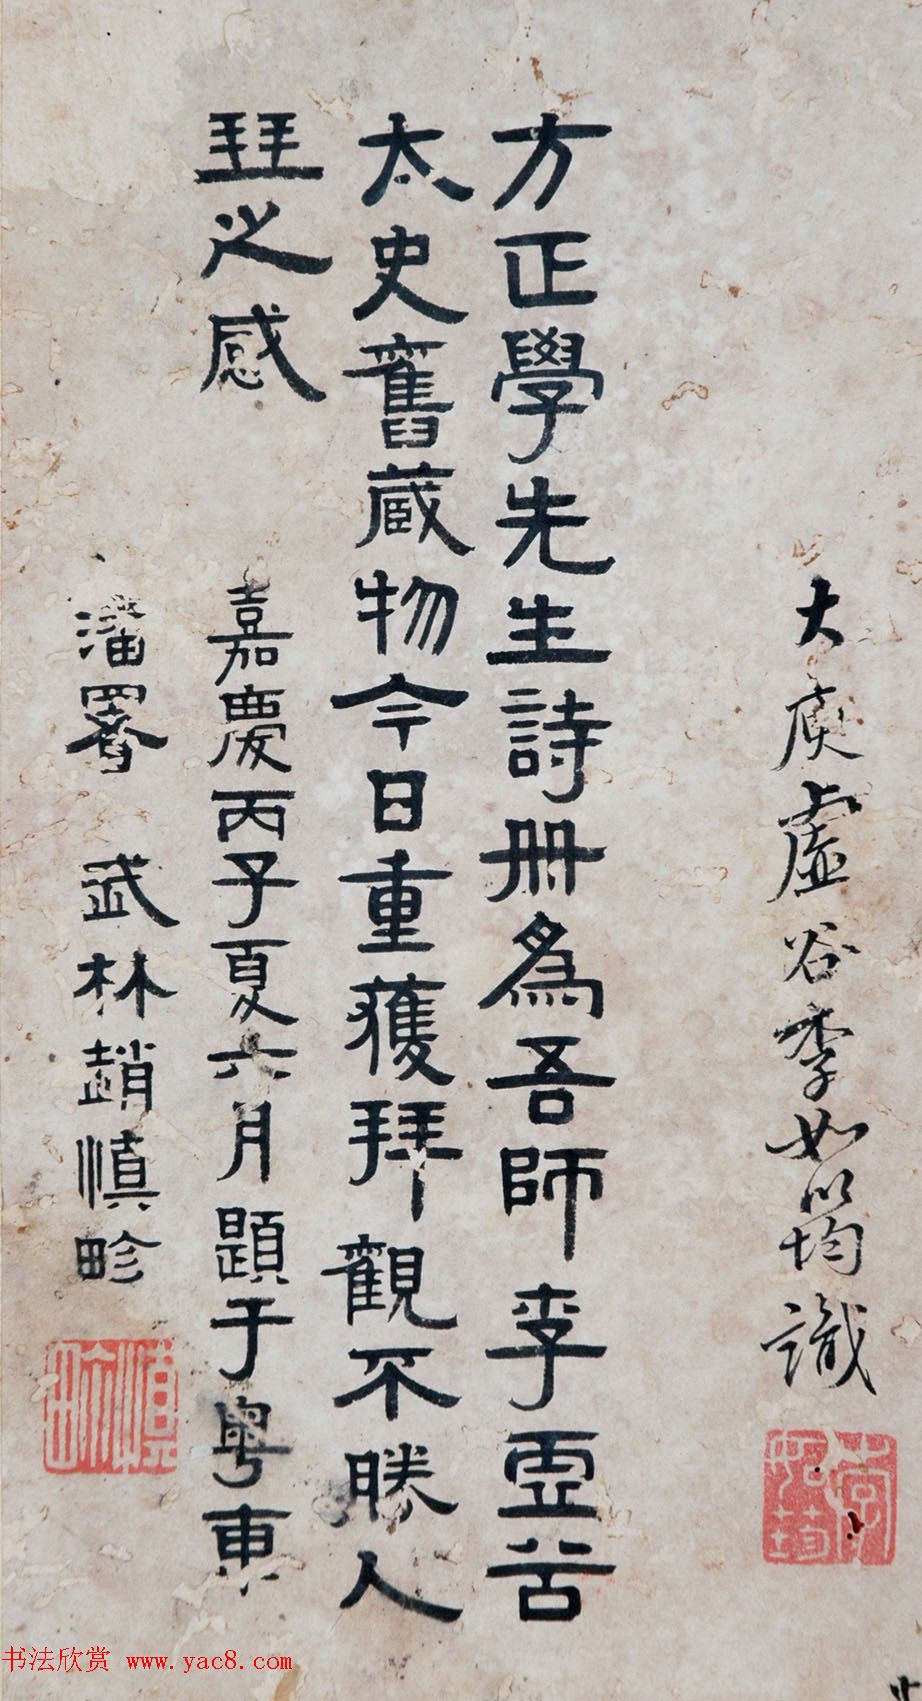 大庾虛谷李如筠識
李如筠
方正學先生詩冊為吾師李虛谷
太史舊藏物今日重獲拜觀不勝人
琴之感
嘉慶丙子夏六月題于粵東
藩署 武林趙慎畛
慎畛
书法欣赏 www.yac8.com